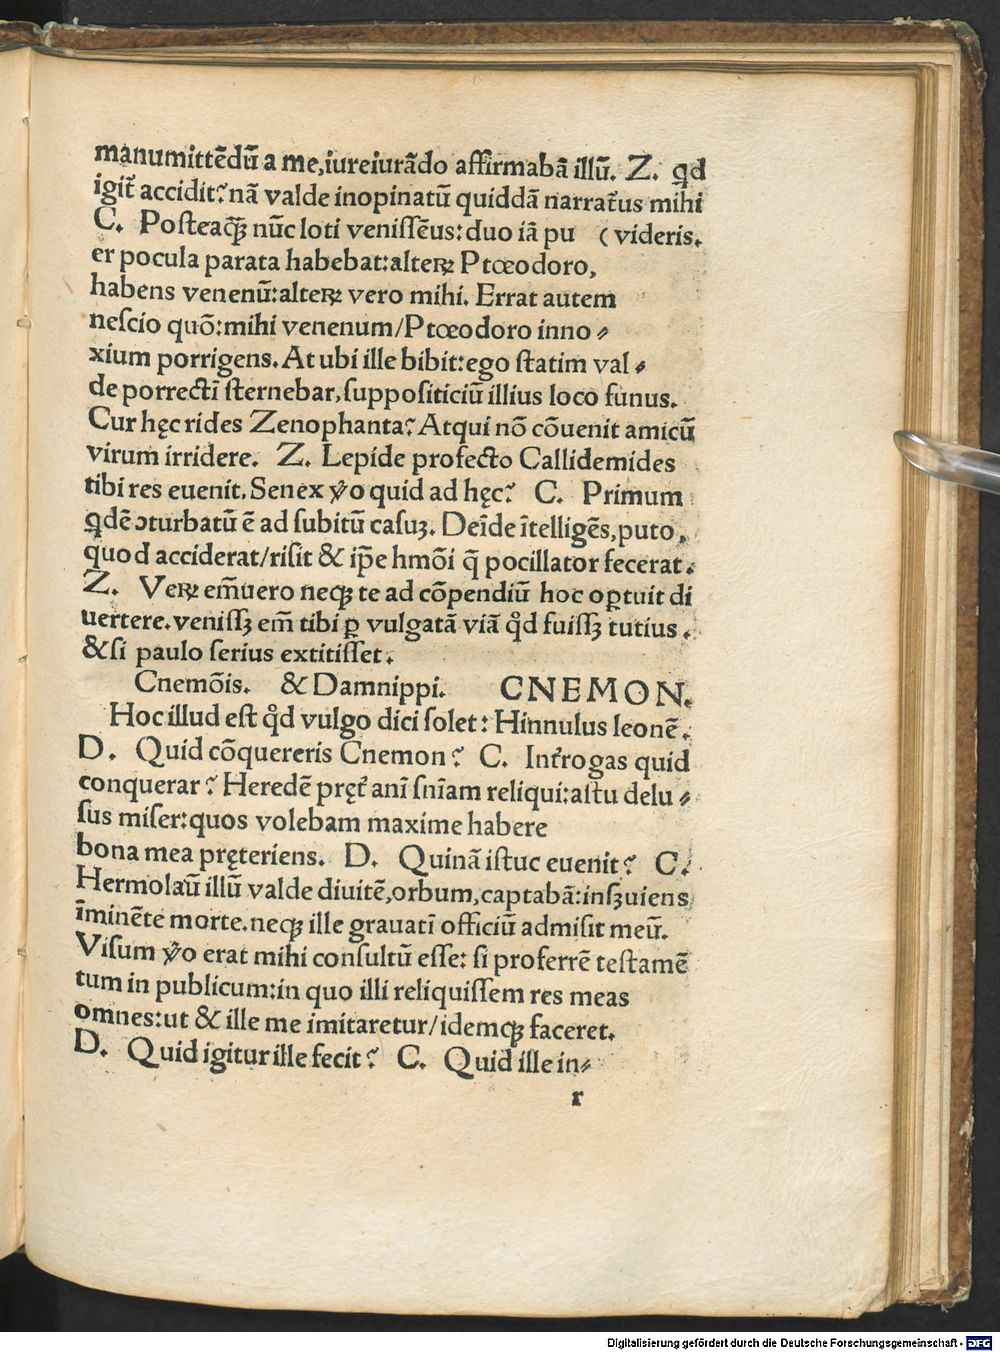 manumittēdū a me,iureiurādo affirmabā illū. Z. qd
igit᷑ accidit?nā valde inopinatū quiddā narrat᷑us mihi
C. Posteaqꝫ nūc loti venissēus:duo iā pu (videris.
er pocula parata habebat:alteꝝ Ptœodoro,
habens venenū:alteꝝ vero mihi. Errat autem
nescio quō:mihi venenum/Ptœodoro inno⸗
xium porrigens.At ubi ille bibit:ego statim val⸗
de porrectī sternebar,supposititiū illius loco funus.
Cur hęc rides Zenophanta?Atqui nō cōuenit amicū
virum irridere. Z. Lepide profecto Callidemides
tibi res euenit.Senex ꝟo quid ad hęc? C. Primum
qdē ↄturbatū ē ad subitū casuꝫ. Deīde ītelligēs,puto,
quod acciderat/risit & ip̄e hmōi q̄ pocillator fecerat.
Z. Veꝝ em̄uero neqꝫ te ad cōpendiū hoc oꝑtuit di
uertere.venissꝫ em̄ tibi ꝑ vulgatā viā qd̄ fuissꝫ tutius.
&si paulo serius extitisset.
Cnemōis. & Damnippi. CNEMON.
Hoc illud est qd̄ vulgo dici solet: Hinnulus leonē.
D. Quid cōquereris Cnemon? C. Int᷑rogas quid
conquerar? Heredē pręt᷑ anī sn̄iam reliqui:astu delu⸗
sus miser:quos volebam maxime habere
bona mea pręteriens. D. Quinā istuc euenit? C.
Hermolaū illū valde diuitē,orbum,captabā:insꝫuiens
īminēte morte.neqꝫ ille grauatī officiū admisit meū.
Visum ꝟo erat mihi consultū esse: si proferrē testamē
tum in publicum:in quo illi reliquissem res meas
omnes:ut & ille me imitaretur/idemqꝫ faceret.
D. Quid igitur ille fecit? C. Quid ille in⸗
r
Digitalisierung gefördert durch die Deutsche Forschungsgemeinschaft - DFG